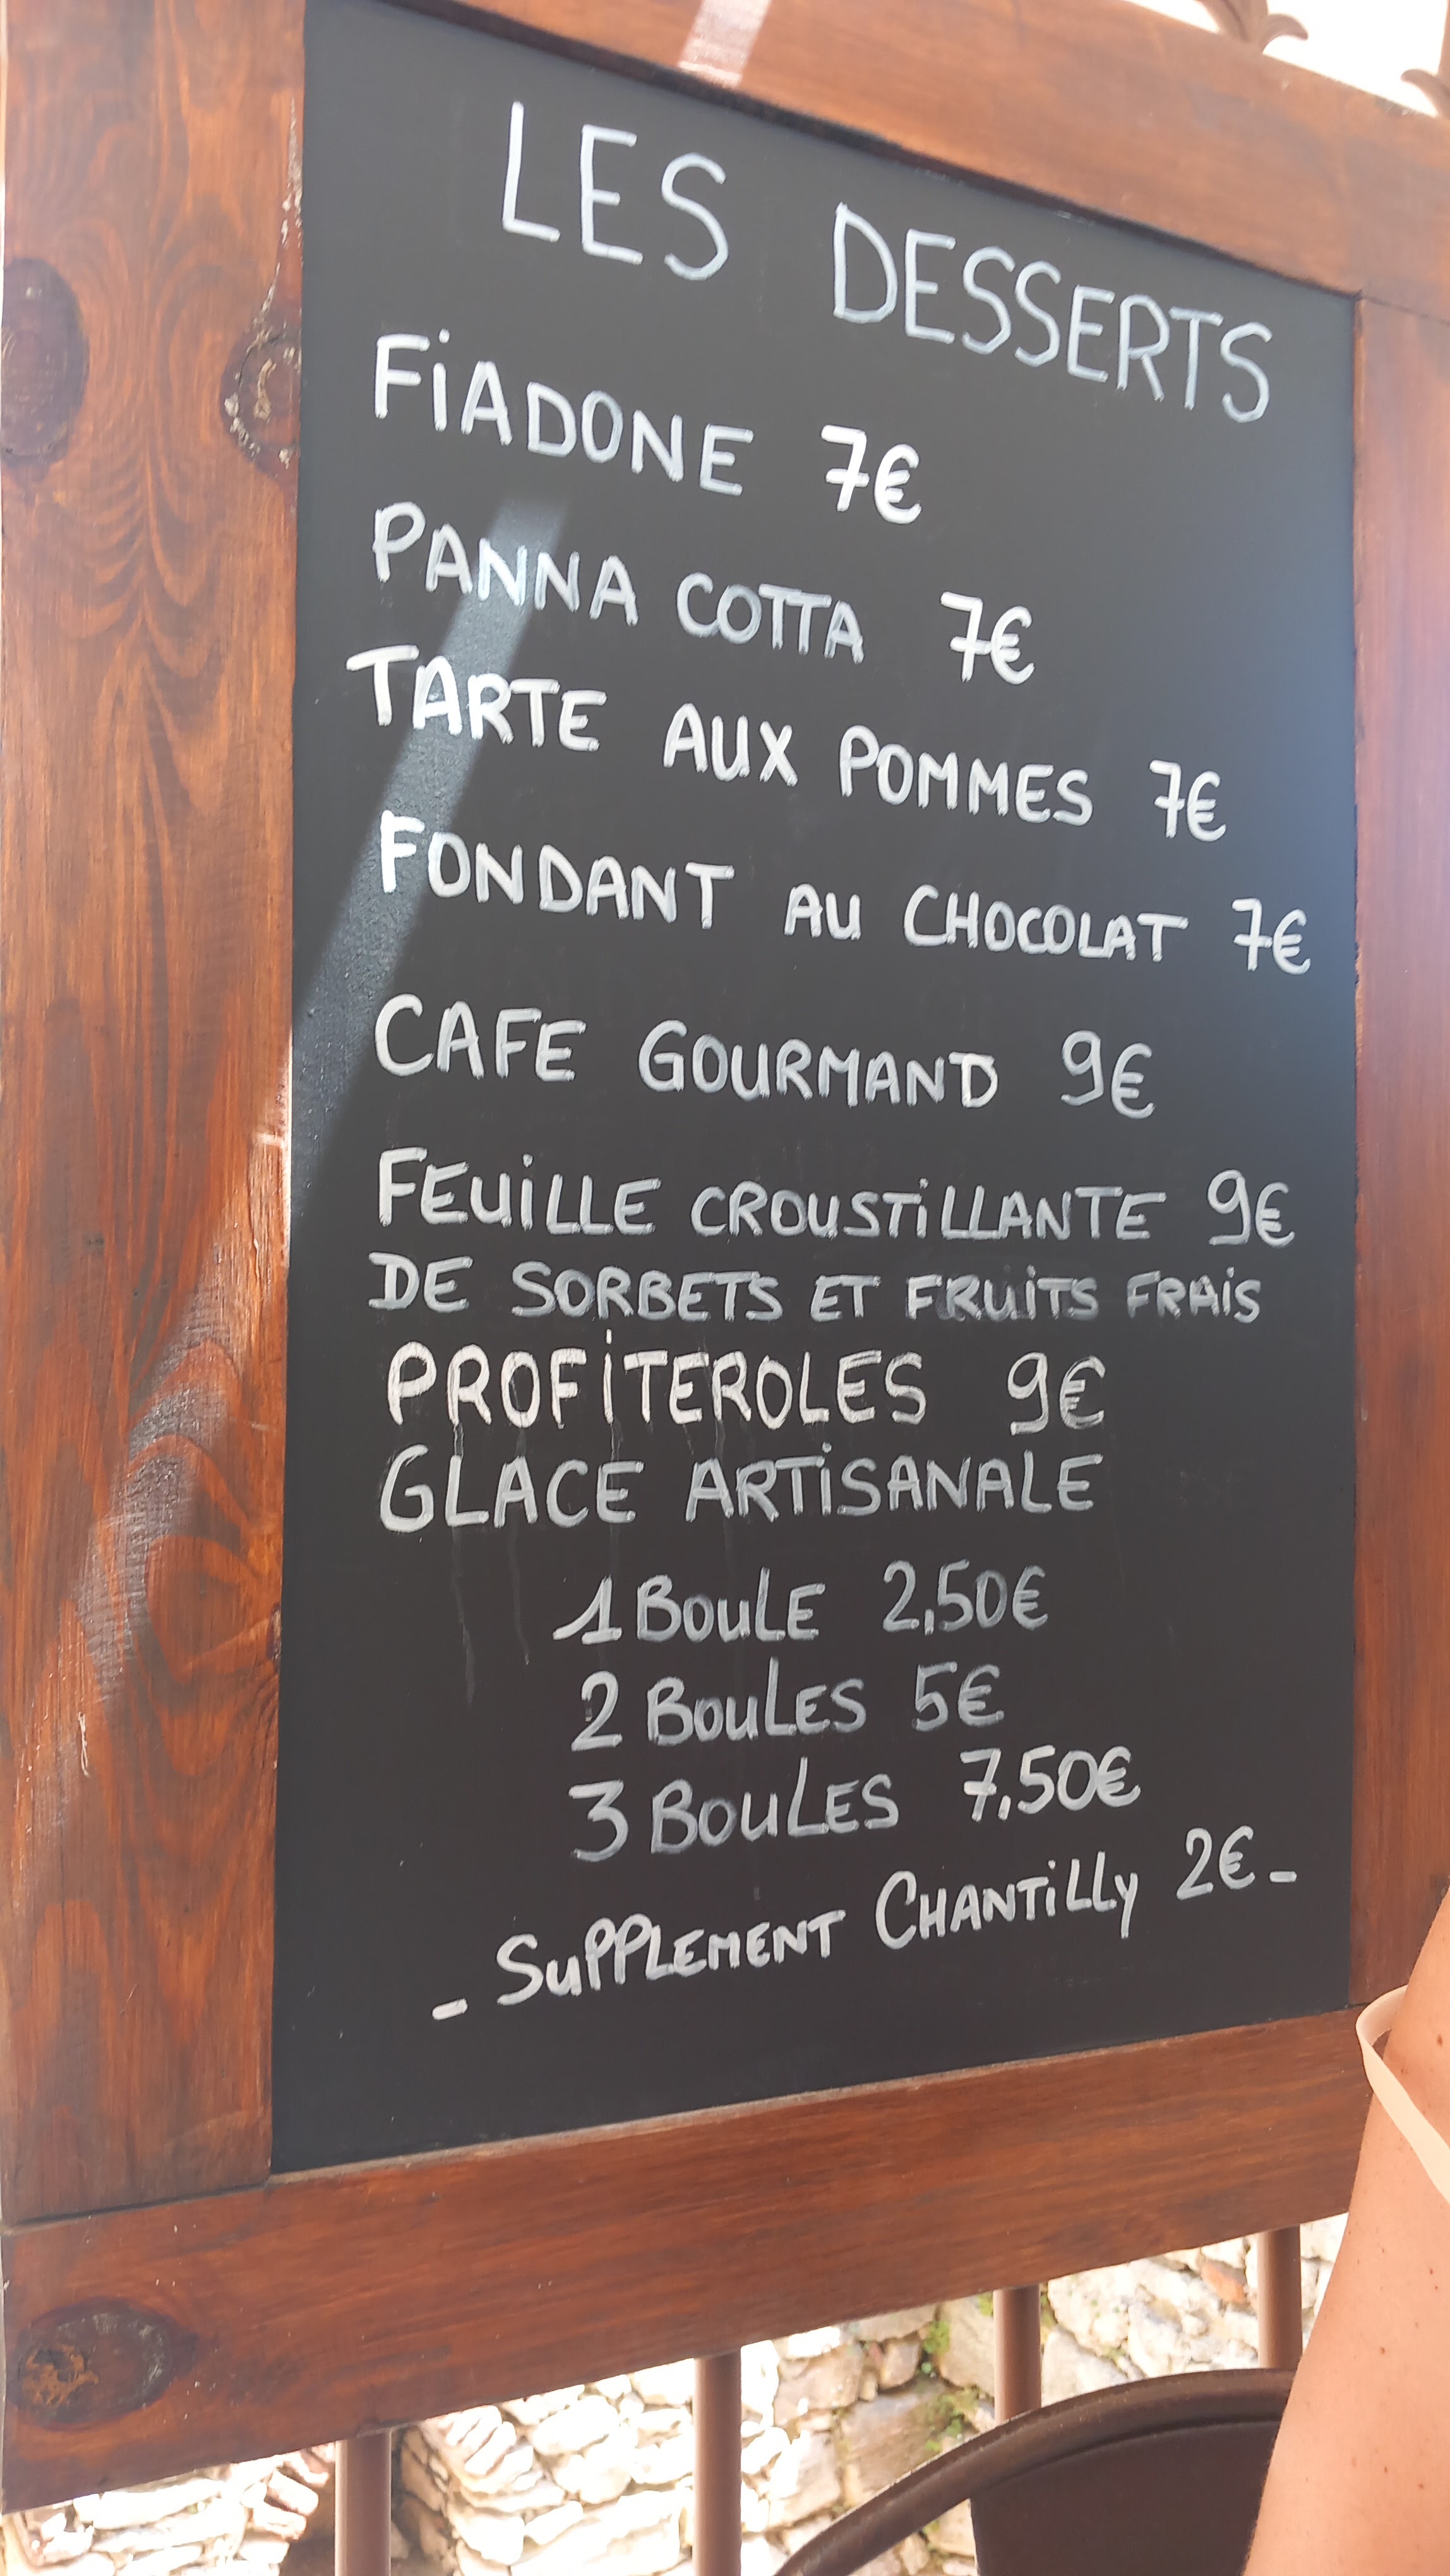 LES DESSERTS
FiADONE 7€
PANNA COTTA 7€
TARTE AUX POMMES 7€
FONDANT AU CHOCOLAT 7€
CAFE GOURMAND 9€
FEUiLLE CROUSTiLLANTE 9€
DE SORBETS ET FRUiTS FRAiS
PROFiTEROLES 9€
GLACE ARTiSANALE
1 BOULE 2,50€
2 BOULES 5€
3 BOULES 7,50€
- SUPPLEMENT CHANTiLLY 2€ -